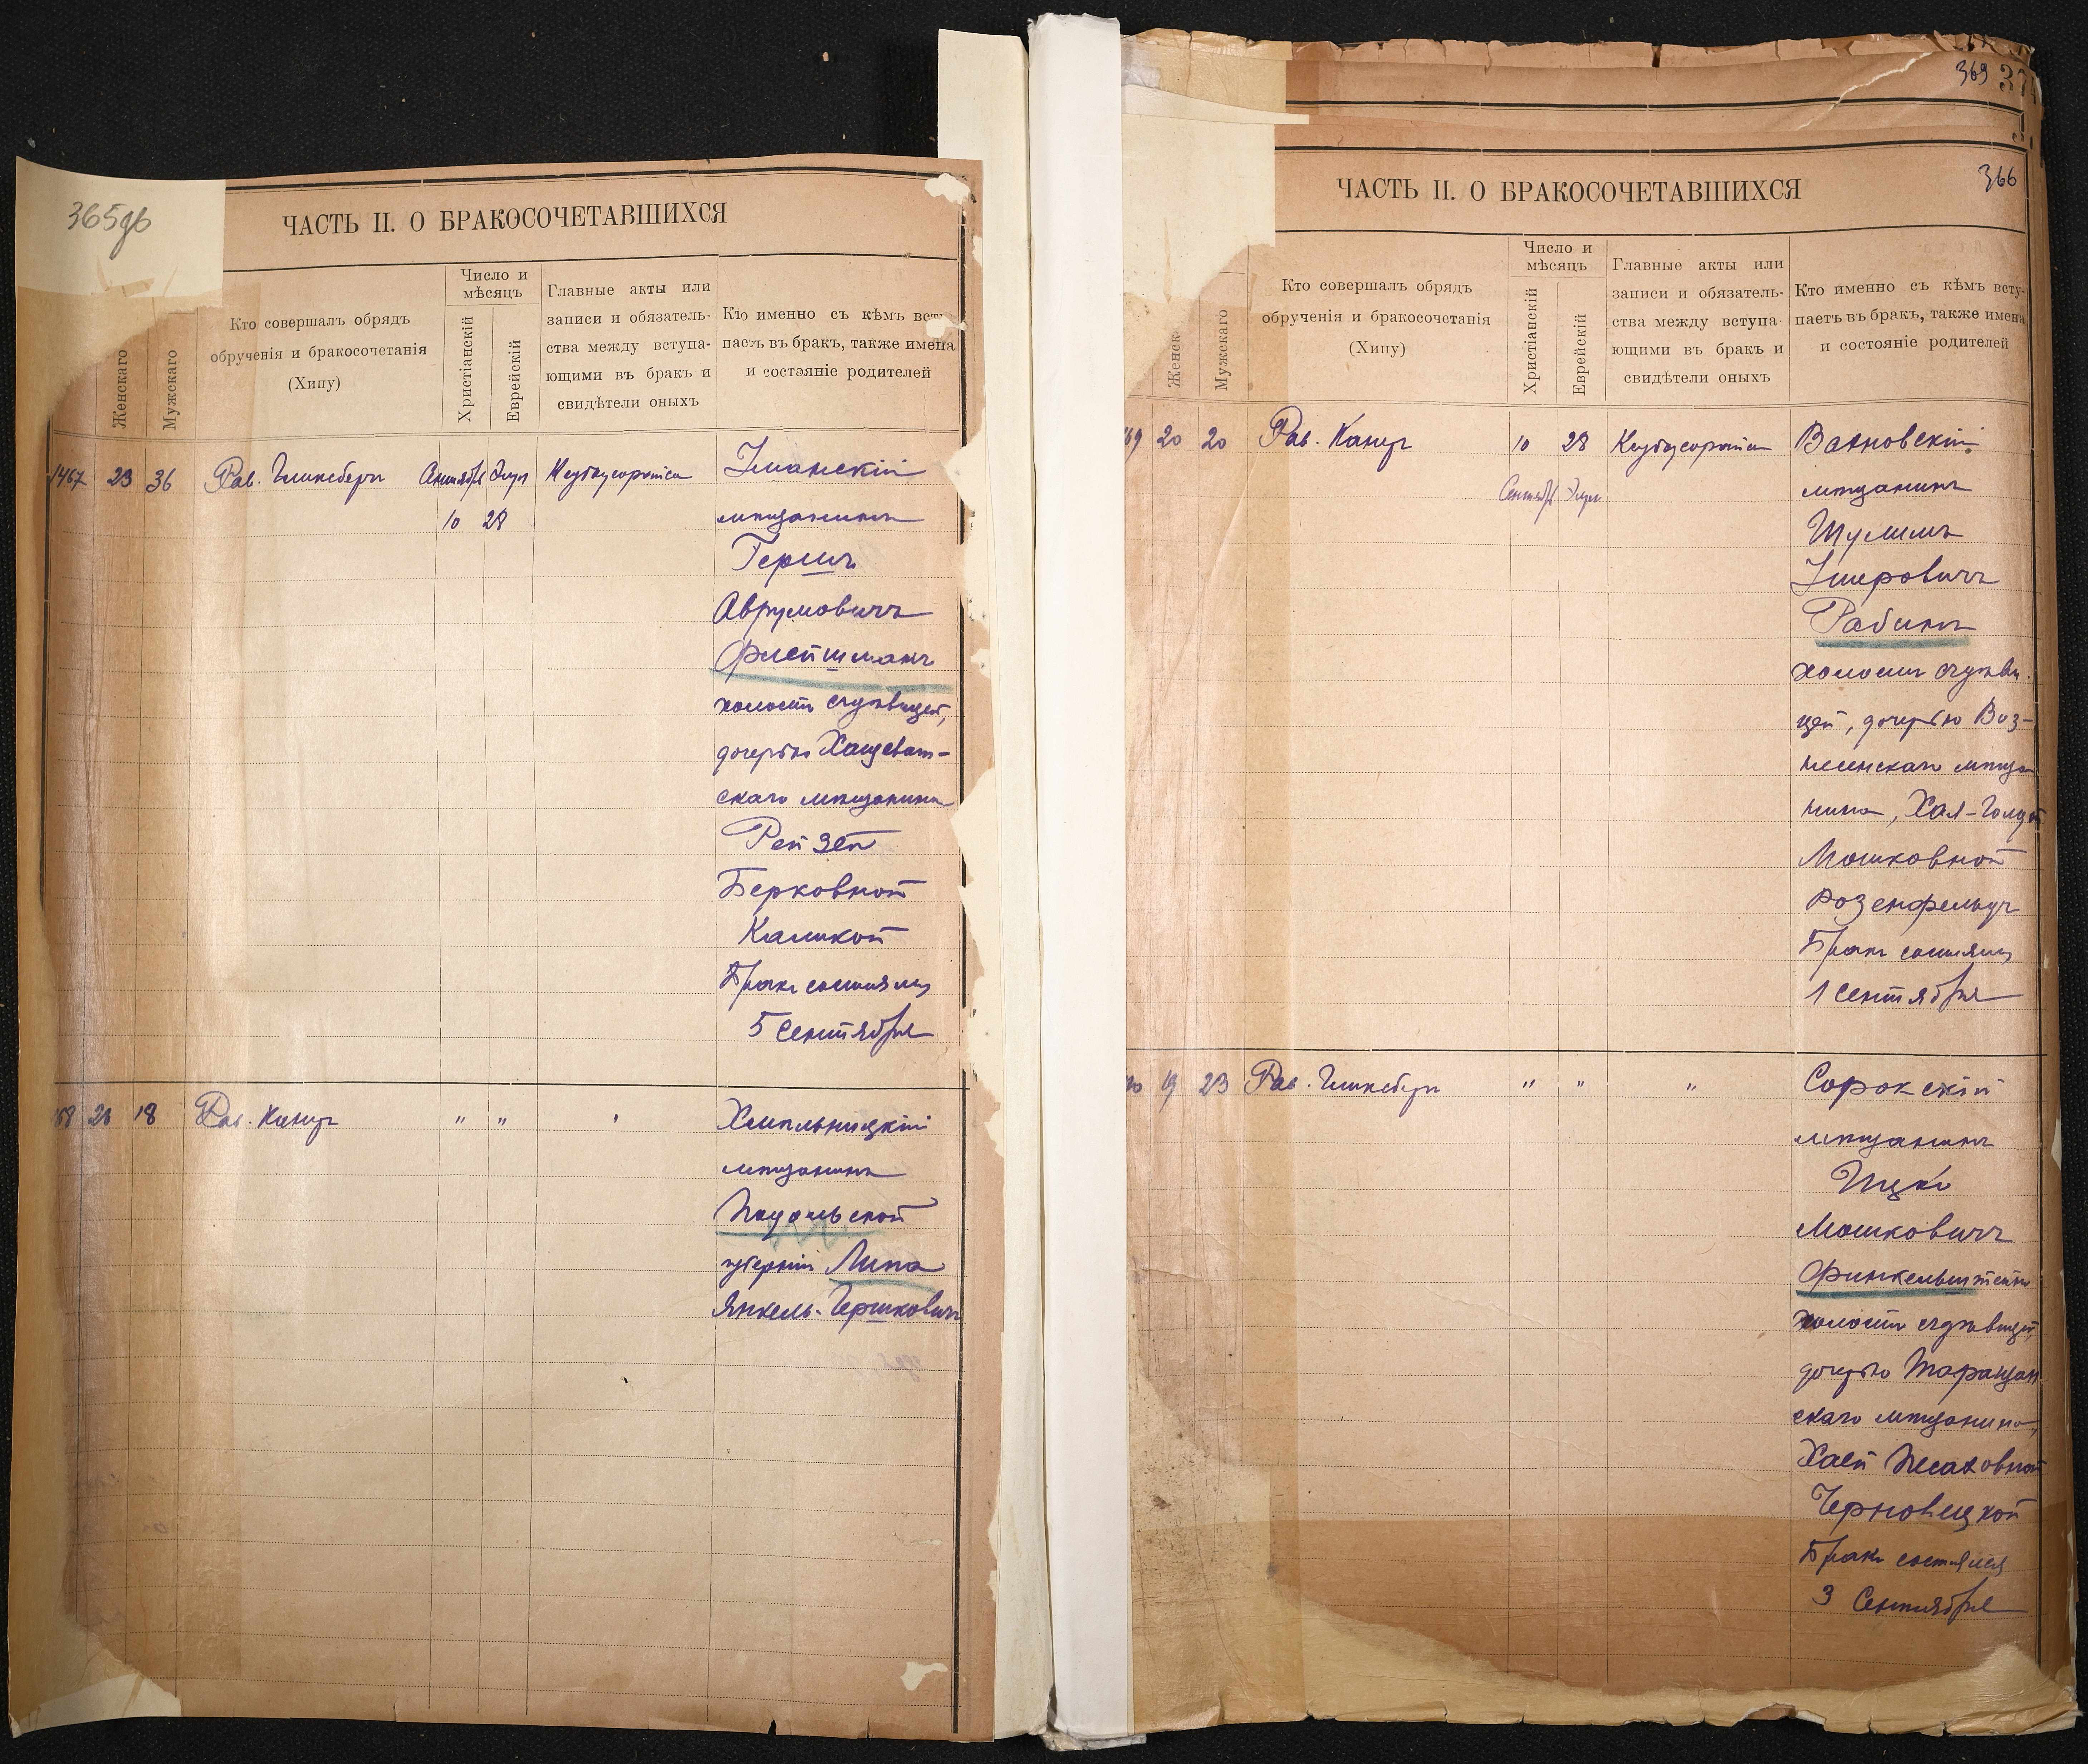 365об
ЧАСТЬ II. О БРАКОСОЧЕТАВШИХСЯ
Женскаго
Мужскаго
Кто совершалъ обрядъ
обрученія и бракосочетанія
(Хипу)
Число и
мѣсяцъ
Христіанскій
Еврейскій
Главные акты или
записи и обязатель-
ства между вступа-
ющими въ бракъ и
свидѣтели оныхъ
Кто именно съ кѣмъ всту
паетъ въ бракъ, также имена
и состояніе родителей
1467 23 36 Рав. Гинсбергъ Сентябрь Элул
10 28
Уманскій
мѣщанинъ
Гершъ
Аврумовичъ
Флейшманъ
холостъ съ дѣвицей,
дочерью Хащеват-
скаго мѣщанина
Рейзей
Берковной
Каликой
Бракъ состоялся
5 Сентября
68 18 Рав. Канцъ " " "
Хмѣльницкій
мѣщанинъ
Подольской
губерніи Липа
Янкель-Гершковичъ
369
ЧАСТЬ II. О БРАКОСОЧЕТАВШИХСЯ
366
Женск
Мужскаго
Кто совершалъ обрядъ
обрученія и бракосочетанія
(Хипу)
Число и
мѣсяцъ
Христіанскій
Еврейскій
Главные акты или
записи и обязатель-
ства между вступа-
ющими въ бракъ и
свидѣтели оныхъ
Кто именно съ кѣмъ всту-
паетъ въ бракъ, также имена
и состояніе родителей
69 20 20 Рав. Канцъ 10 28
Сентябрь Элул
мѣщанинъ
Шулимъ
Умеровичъ
Рабинъ
холостъ съ дѣви
цей, дочерью Воз-
несенскаго мѣща
нина, Хая-Голдой
Мошковной
Розенфельдъ
Бракъ состоялся
1 Сентября
70 19 23 Рав. Гинсбергъ " " "
Сорокскій
мѣщанинъ
Ицко
Мошковичъ
Финкельштейнъ
холостъ съ дѣвицей,
дочерью Таращан
скаго мѣщанина,
Хаей Песаховной
Черновецкой
Бракъ состоялся
3 Сентября